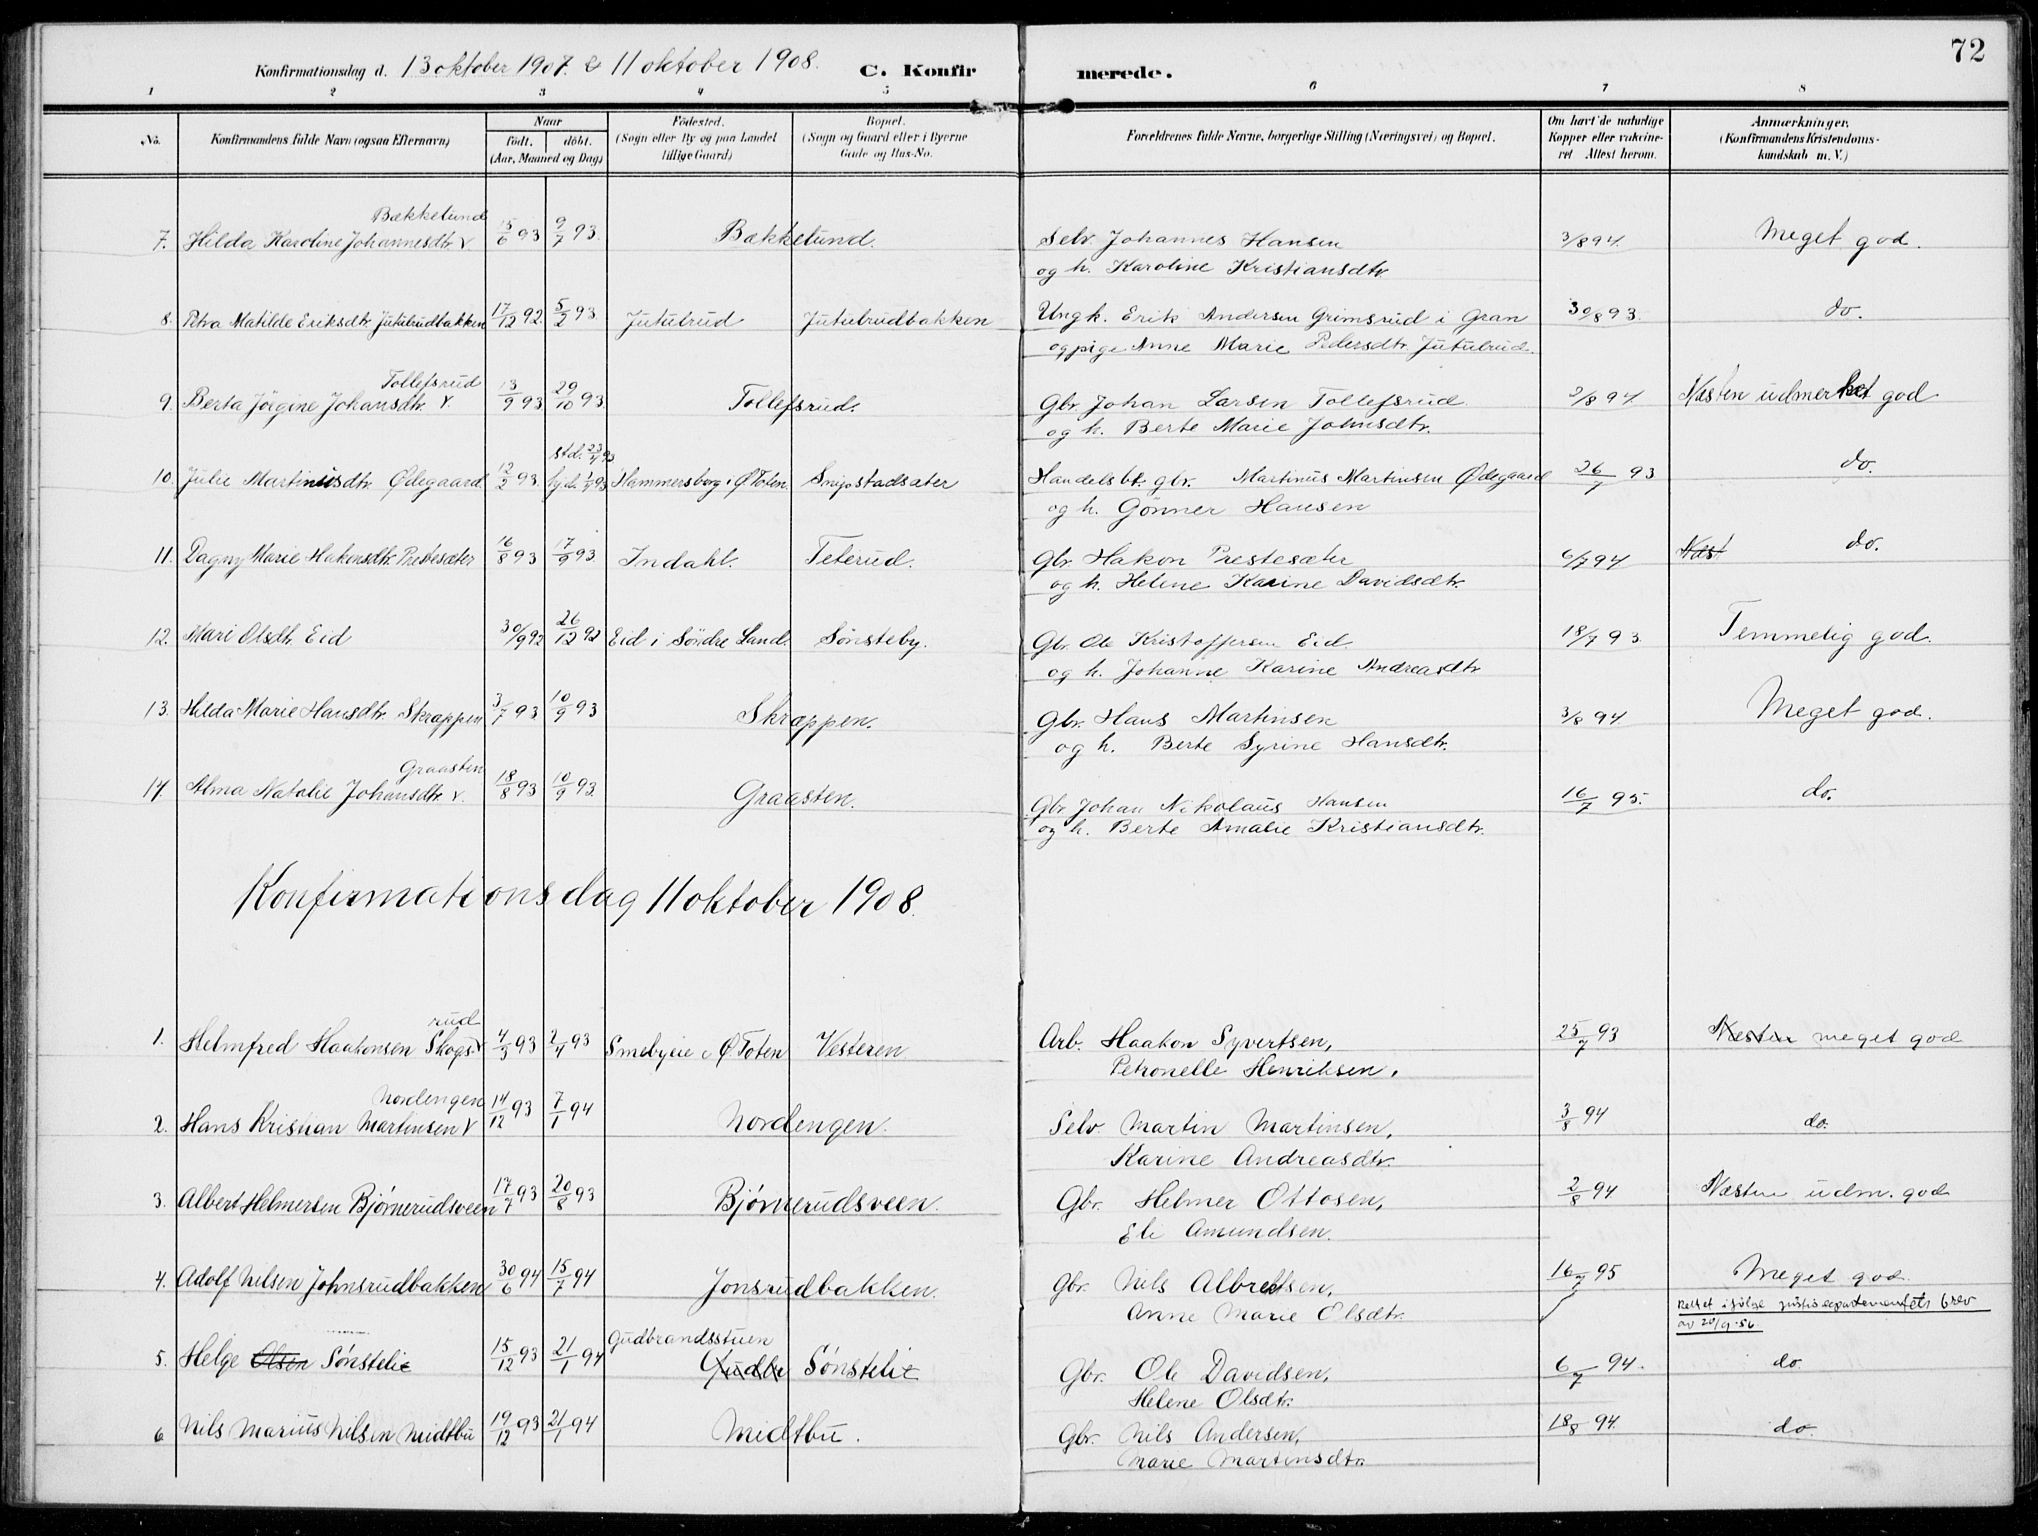 72
Konfirmationsdag d. 13 oktober 1907. & 11 oktober 1908. C. Konfirmerede.
1 2 3 4 5 6 7 8
No. Konfirmandens fulde Navn (ogsaa Efternavn) Naar født. døbt. (Aar, Maaned og Dag) Fødested. (Sogn eller By og paa Landet tillige Gaard) Bopæl. (Sogn og Gaard eller i Byerne Gade og Hus-No. Forældrenes fulde Navne, borgerlige Stilling (Næringsvei) og Bopæl. Om havt de naturlige Kopper eller vakcineret Attest herom. Anmærkninger. (Konfirmandens Kristendomskundskab m. V.)
Bækkelund
7. Hilda Karoline Johannesdtr. 15/6 93 9/7 93. Bækkelund. Selv. Johannes Hansen 3/8 94. Meget god.
og h. Karoline Kristiansdtr.
8. Petra Matilde Eriksdtr. Jutulrudbakken 17/12 92. 5/2 93. Jutulrud Jutulrudbakken Ungk. Erik Andersen Grimsrud i Gran 30/8 93. do.
og pige Anne Marie Pedersdtr. Jutulrud.
Tollefsrud
9. Berta Jörgine Johansdtr. 13/9 93 29/10 93. Tollefsrud. Gbr. Johan Larsen Tollefsrud 2/8 94. Næsten udmerket god
og h. Berte Marie Johnsdtr.
10. Julie Martinusdtr. Ødegaard. 12/2 93. Hammersberg i Ø Toten. Handelsbt. gbr. Martinus Martinsen Ødegaard 26/7 93 do.
og h. Gønner Hansen
11. Dagny Marie Hakonsdtr. Prestesæter 16/8 93 17/9 93. Indahl. Teterud. Gbr. Hakon Prestesæter 6/7 94 Næst do.
og h. Helene Karine Davidsdtr.
12. Mari Olsdtr. Eid 30/9 92 26/12 92 Eid i Söndre Land. Sønsteby. Gbr. Ole Kristoffersen Eid. 18/7 93. Temmelig god.
og h. Johanne Karine Andreasdtr
13. Hilda Marie Hansdtr. Skrappen 3/7 93 10/9 93 Skrappen. Gbr. Hans Martinsen 3/8 94 Meget god.
og h. Berte Syrine Hansdtr.
Graasten
14. Alma Natalie Johansdtr. 18/8 93 10/9 93. Graasten. Gbr Johan Nikolaus Hansen 16/7 95. do.
og h. Berte Amalie Kristiansdtr.
Konfirmationsdag 11 oktober 1908.
rud
1. Helmfred Haakonsen Skogs 4/3 93 2/4 93 Smebyeie i Ø. Toten Vesteren Arb. Haakon Syvertsen, 25/7 93 Næsten meget god
Petronelle Henriksen.
Nordengen
2. Hans Kristian Martinsen 14/12 93 7/1 94 Nordengen. Selv. Martin Martinsen, 3/8 94 do.
Karine Andreasdtr.
3. Albert Helmersen Bjørnerudsveen 17/7 93 20/8 93 Bjørnerudsveen. Gbr. Helmer Ottosen, 2/8 94 Næsten udm. god
Eli Amundsen.
4. Adolf Nilsen Johnsrudbakken 30/6 94 15/7 94 Jonsrudbakken. Gbr. Nils Albretsen, 16/7 95 Meget god
Anne Marie Olsdtr.
Rettet ifølge justisdepartementets brev
av 20/9-56.
Gudbrandsstuen
5. Helge Olsen Sønstelie 15/12 93 21/1 94 Gudbr Sønstelie Gbr. Ole Davidsen, 6/7 94. do.
Helene Olsdtr.
6. Nils Marius Nilsen Midtbu 19/12 93 21/1 94 Midtbu. Gbr. Nils Andersen, 18/8 94. do.
Marie Martinsdtr.